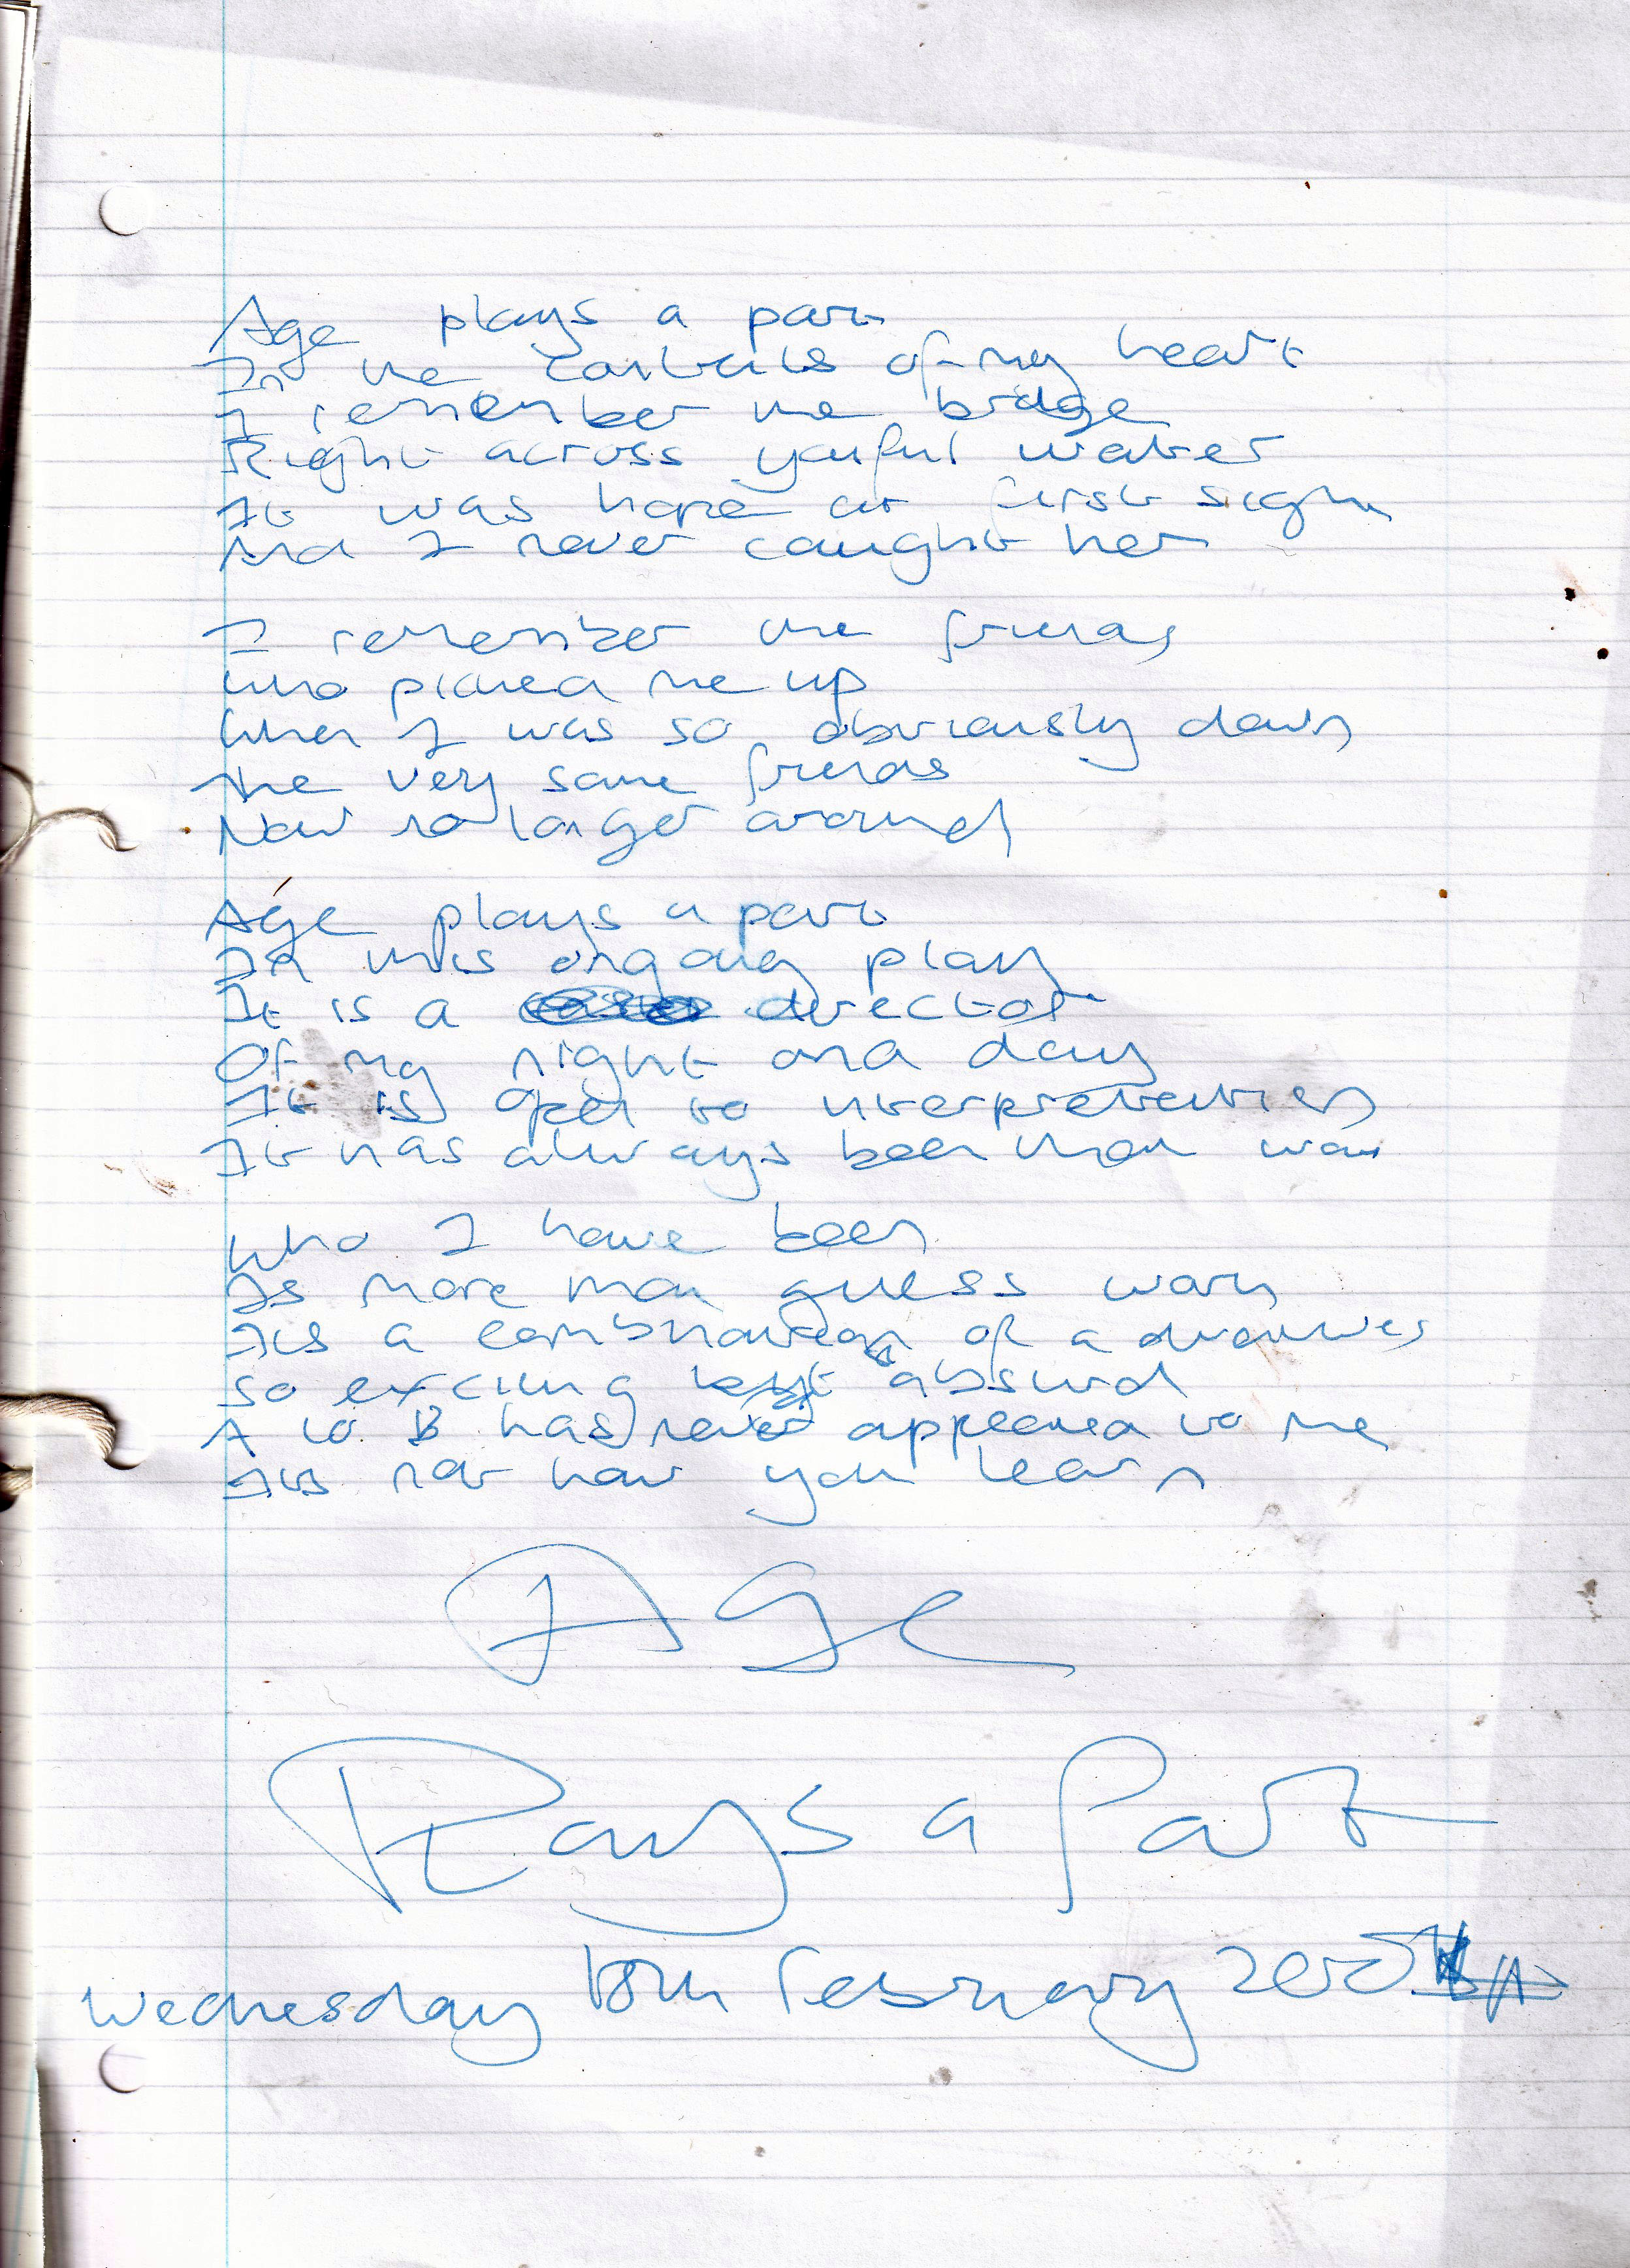 Age plays a part
In the contents of my heart
I remember the bridge
Right across youful water
It was hope at first sight
And I never caught her
I remember the friends
Who picked me up
When I was so obviously down
The very same friends
Now no longer around
Age plays a part
In this ongoing play
It is a director
Of my night and day
It is open to interpretation
It has always been that way
Who I have been
Is more than guess work
Its a combination of adventures
So exciting absurd
A to B has never appealed to me
Its not how you learn
Age
Plays a Part
Wednesday February